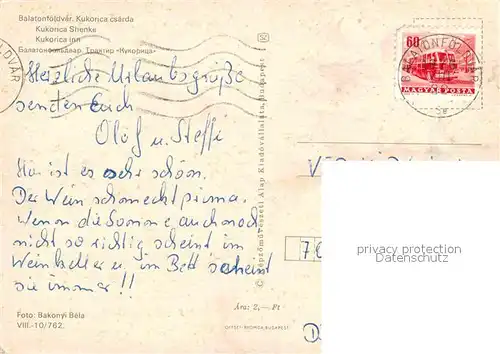 Balatonföldvár. Kukorica csárda
Kukorica Shenke
Kukorica Inn
Балатонфёльдвар. Трактир «Кукорица»
Herzliche Urlaubsgrüße
senden Euch
Olof u. Steffi
Hier ist es sehr schön.
Der Wein schmeckt prima.
Wenn die Sonne auch noch
nicht so richtig scheint im
Weinkeller u. im Bett scheint
sie immer!!
Foto: Bakonyi Béla
VIII.-10/762.
Ára: 2,— Ft
OFFSET
BUDAPEST
© Képzőművészeti Alap Kiadóvállalata, Budapest
60
MAGYAR POSTA
BALATONFÖLDVÁR
privacy protection
VDM